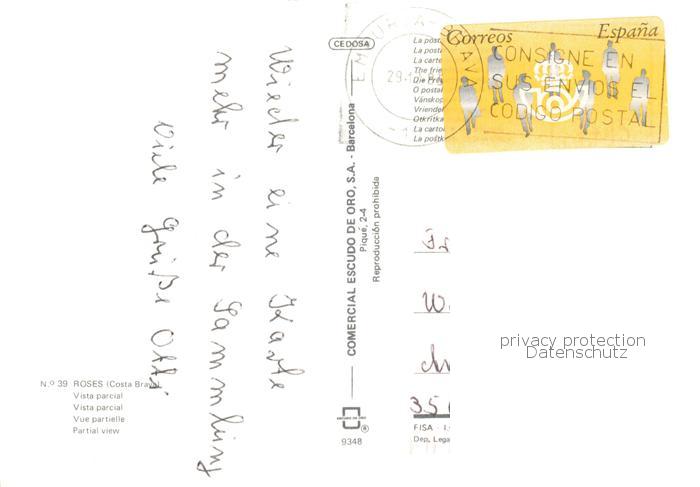 Wieder eine Karte
mehr in der Sammlung
Viele Grüße Otti
N.º 39 ROSES (Costa Brava)
Vista parcial
Vista parcial
Vue partielle
Partial view
CEDOSA
COMERCIAL ESCUDO DE ORO, S.A. - Barcelona
Piqué, 2-4
Reproducción prohibida
ESCUDO DE ORO
®
9348
La post
La posta
La carte
The frie
Die Fre
O postal
Vänskop
Vriende
Otkritka
La carto
La poštk
Correos España
CONSIGNE EN
SUS ENVIOS EL
CODIGO POSTAL
29
W
35
FISA
Dep, Lega
privacy protection
Datenschutz